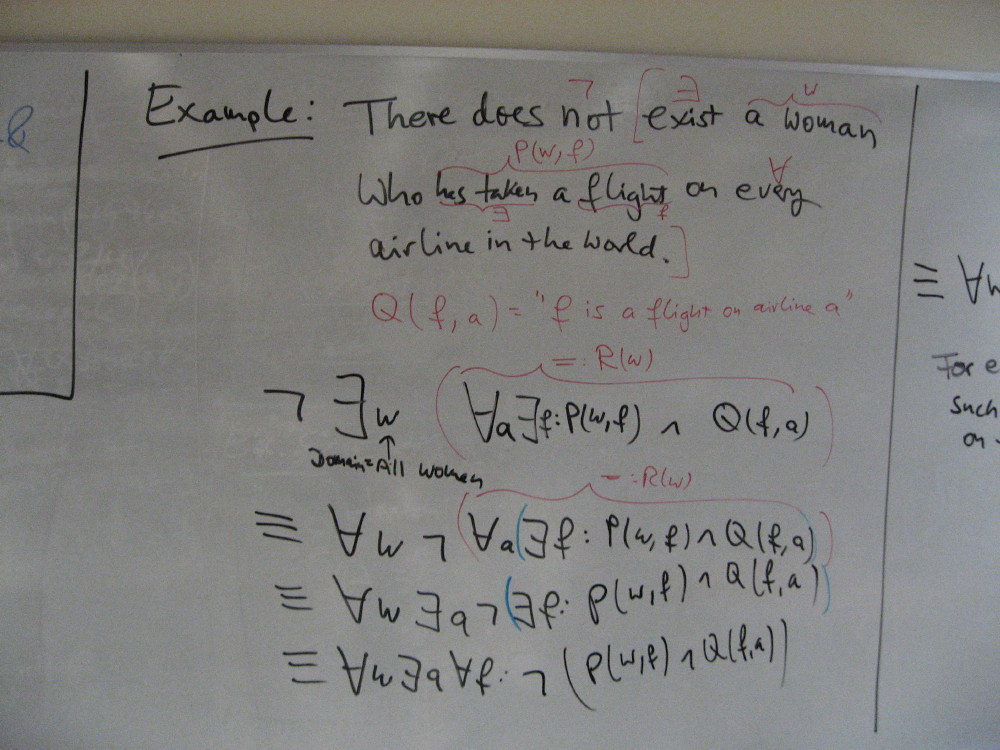 Q
¬ ∃ w
Example: There does not [exist a woman
P(w, f) ∀
Who has taken a flight on every
∃ f
airline in the world.]
Q(f, a) = "f is a flight on airline a"
=: R(w)
¬ ∃w (∀a∃f: P(w,f) ∧ Q(f,a))
Domain = All women
=: R(w)
≡ ∀w ¬ (∀a(∃f: P(w,f) ∧ Q(f,a)))
≡ ∀w ∃a ¬(∃f: P(w,f) ∧ Q(f,a))
≡ ∀w∃a∀f: ¬(P(w,f) ∧ Q(f,a))
≡ ∀w
For e
such
on